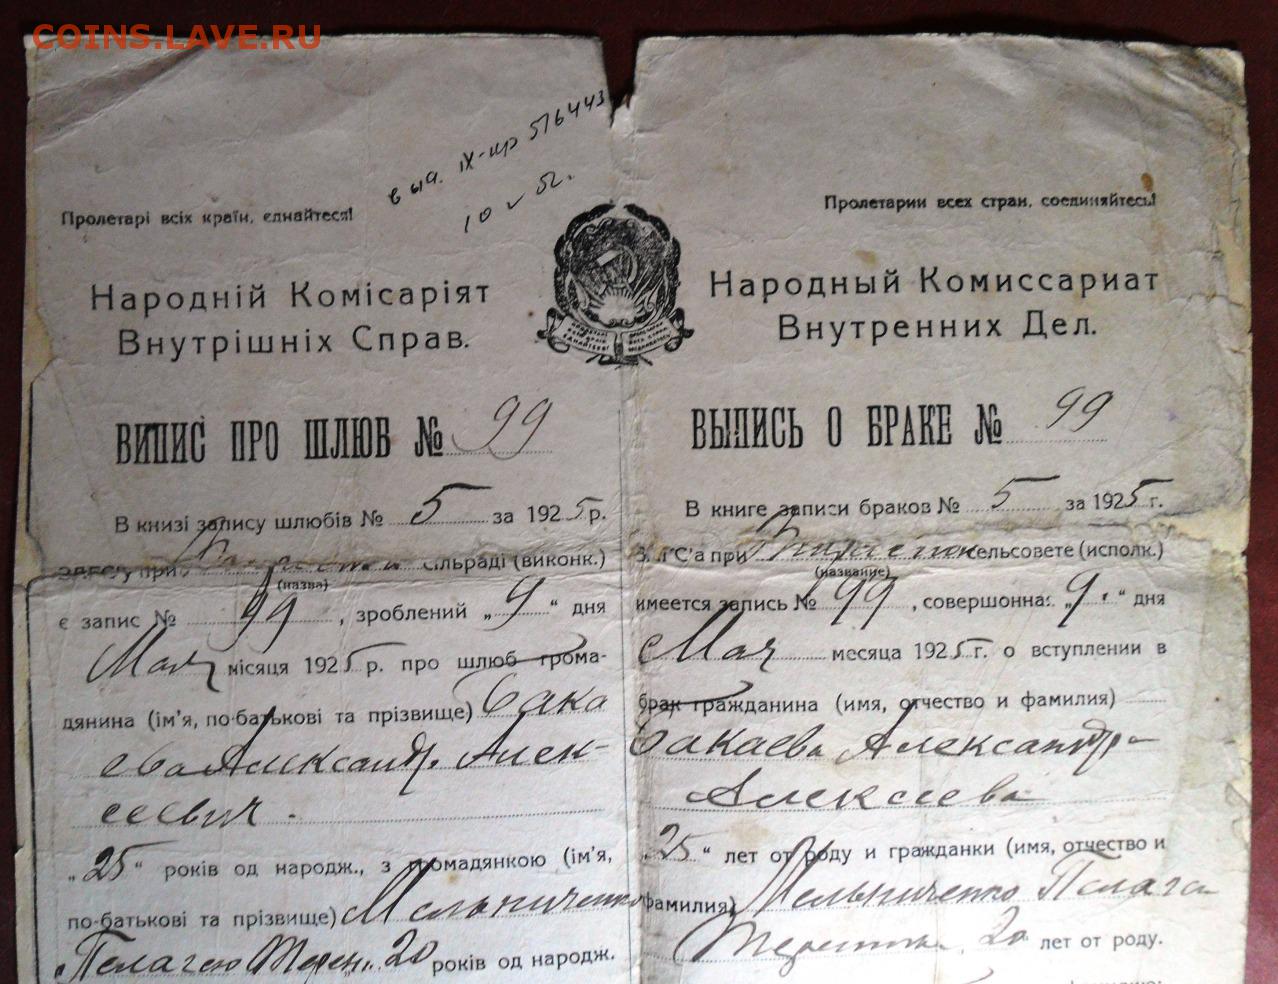 COINS.LAVE.RU
выд. IX-пр 516443
10 52.
Пролетарі всіх країн, єднайтеся!
Народній Комісаріят
Внутрішніх Справ.
ВИПИС ПРО ШЛЮБ № 99
В книзі запису шлюбів № 5 за 1925 р.
ЗАГС'у при сільраді (виконк.)
(назва)
є запис № 99, зроблений „9“ дня
Мая місяця 1925 р. про шлюб грома-
дянина (ім'я, по-батькові та прізвище) Бака
ева Александр. Алек-
сеевич.
„25“ років од народж., з громадянкою (ім'я,
по-батькові та прізвище) Мельниченко
Пелагею 20 років од народж.
Пролетарии всех стран, соединяйтесь!
Народный Комиссариат
Внутренних Дел.
ВЫПИСЬ О БРАКЕ № 99
В книге записи браков № 5 за 1925 г.
при сельсовете (исполк.)
(название)
имеется запись № 99, совершонная „9.“ дня
Мая месяца 1925 г. о вступлении в
брак гражданина (имя, отчество и фамилия)
Бакаева Александра
Алексеева
„25“ лет от роду и гражданки (имя, отчество и
фамилия) Мельниченко Пелагея
20 лет от роду.